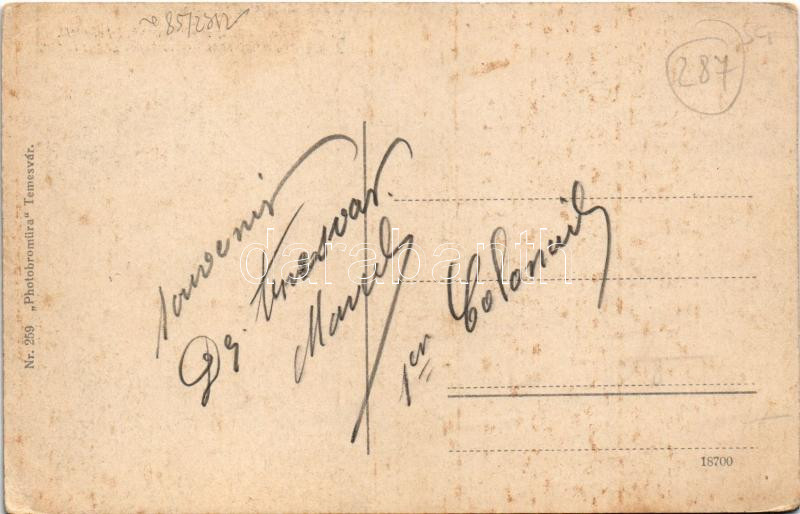 85/2012
287
souvenir
De Temesvar.
Marcel
1er
Nr. 259 „Photobromüra" Temesvár.
darabanth
18700